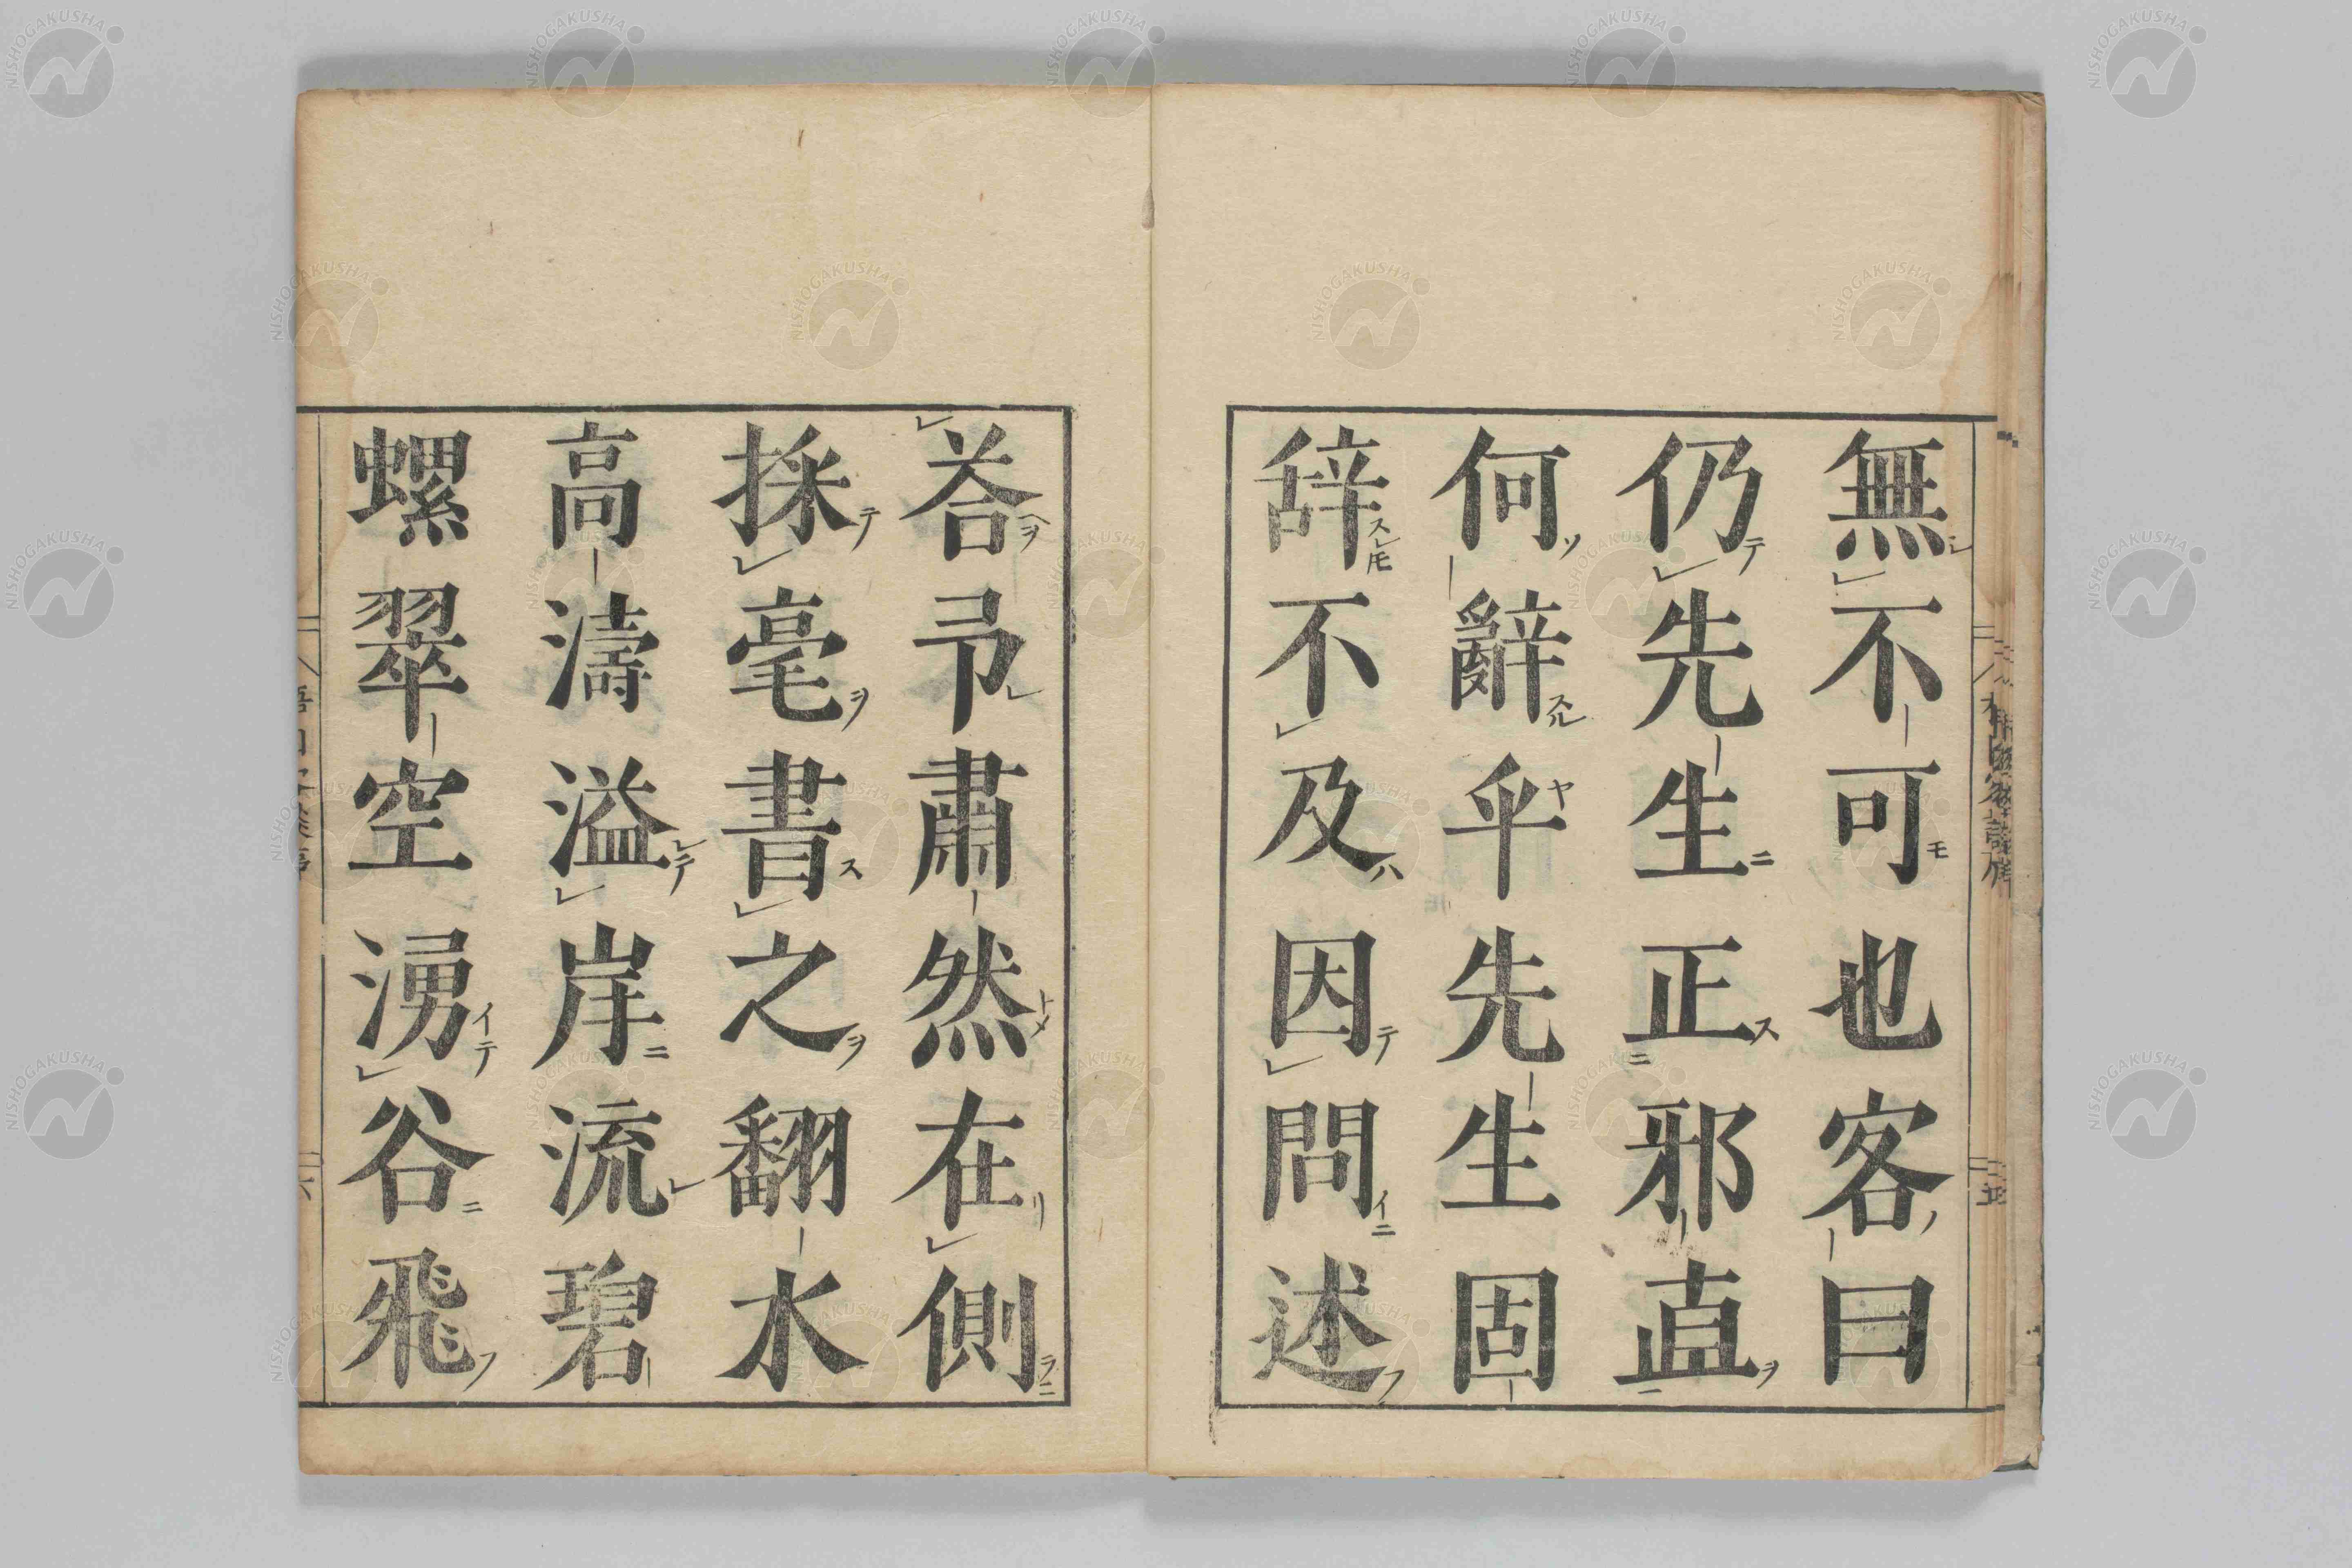 無不可也客曰
仍先生正邪直
何辭乎先生固
辞不及因問述
荅予肅然在側
採毫書之翻水
高濤溢岸流碧
螺翠空湧谷飛